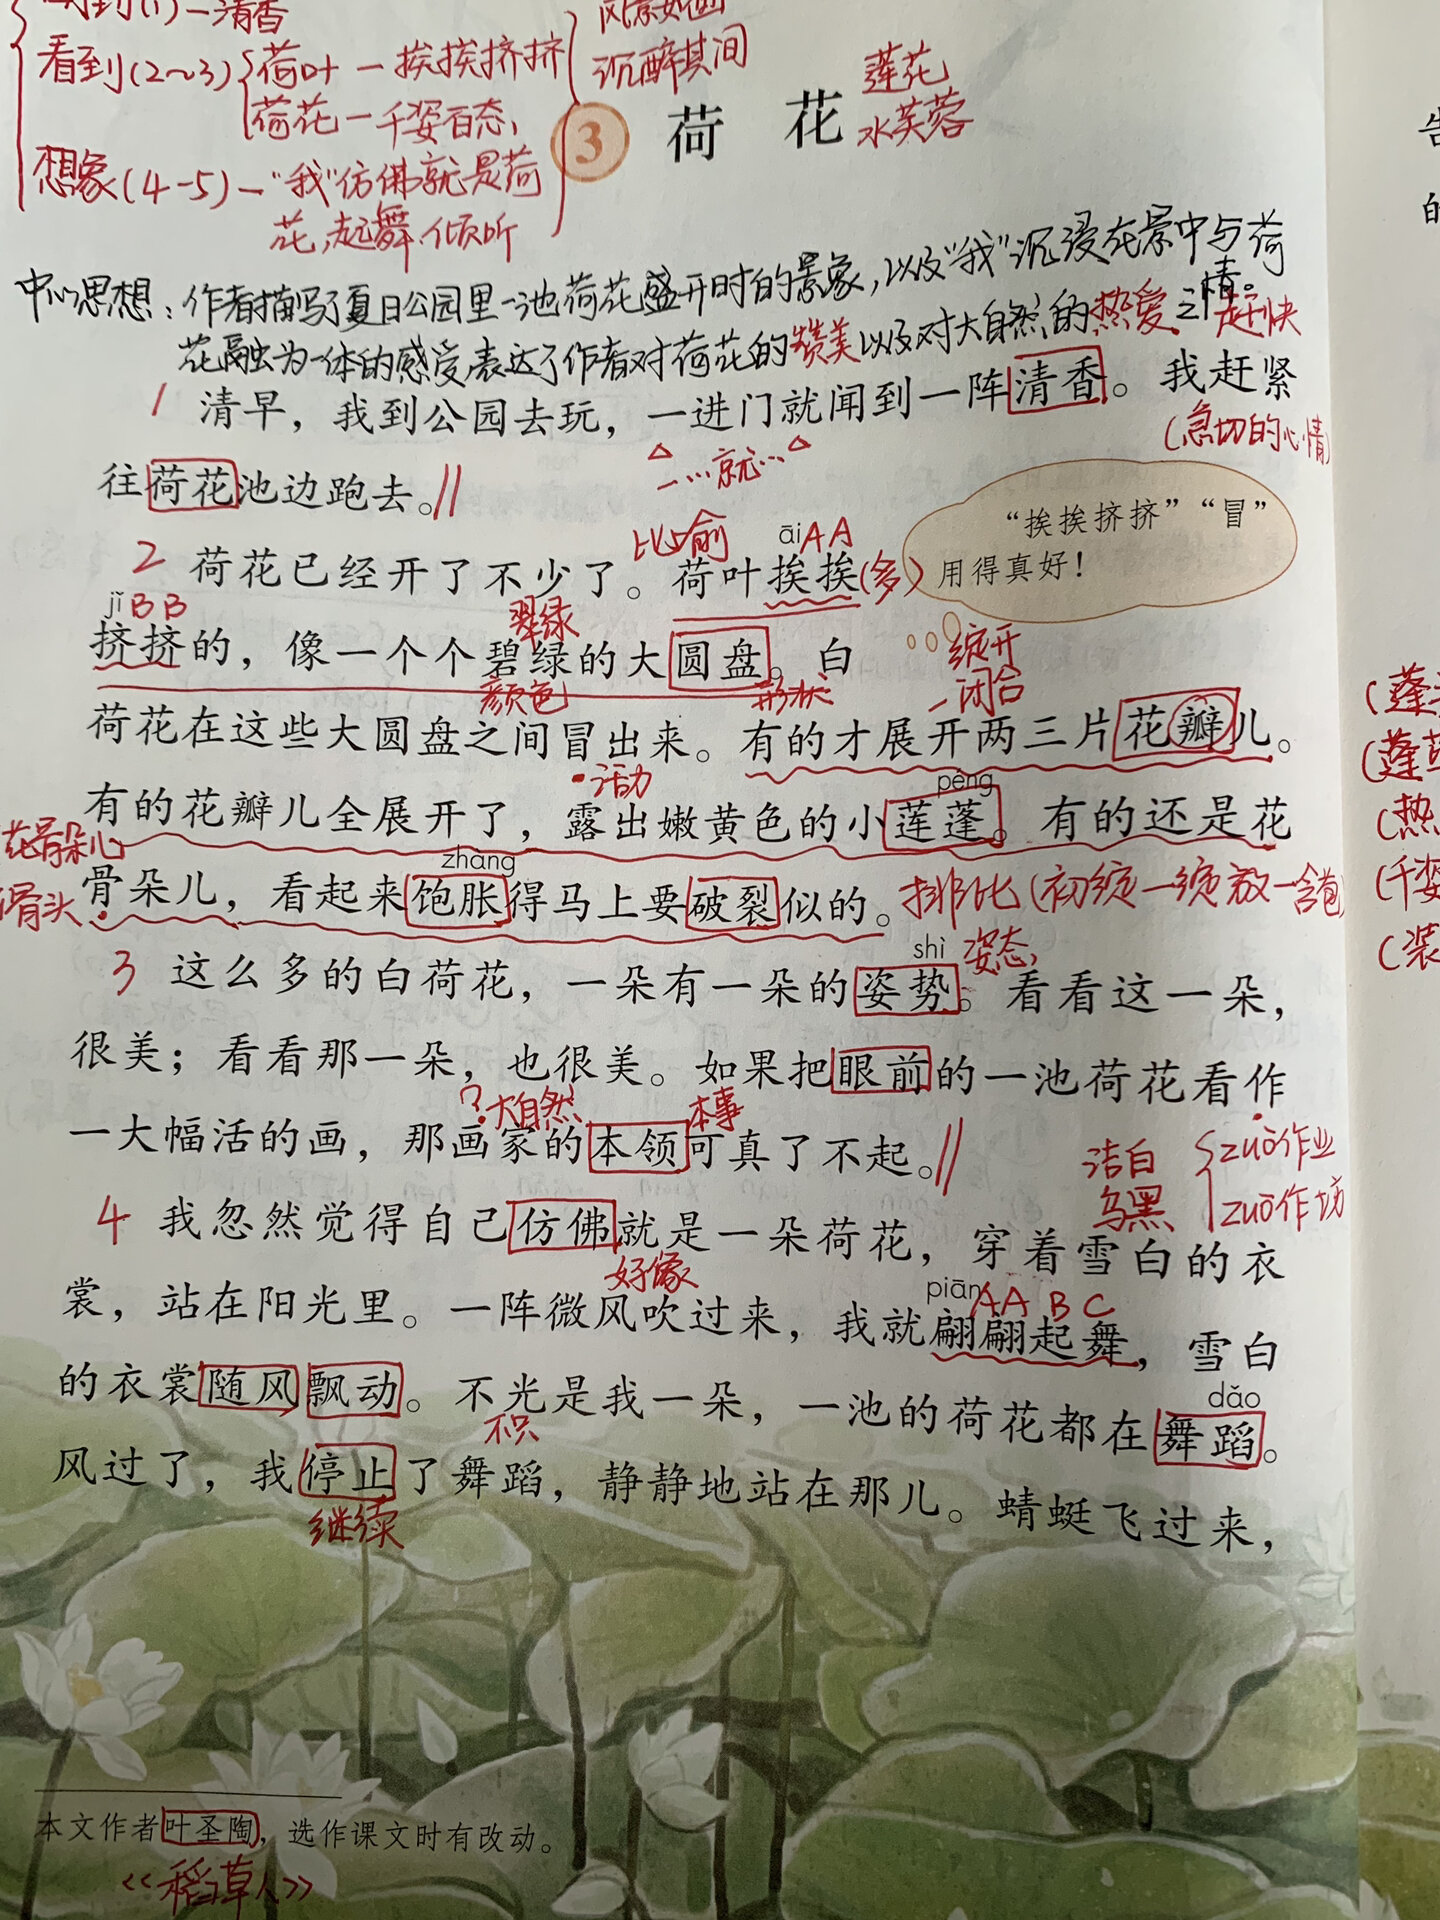 清香
看到(2～3) 荷叶－挨挨挤挤
荷花－千姿百态
想象(4-5)－“我”仿佛就是荷
花,起舞、倾听
风景如画
沉醉其间
3 荷花
莲花
水芙蓉
中心思想：作者描写了夏日公园里一池荷花盛开时的景象，以及“我”沉浸在景中与荷
花融为一体的感受表达了作者对荷花的赞美以及对大自然的热爱之情。
赶快
1 清早，我到公园去玩，一进门就闻到一阵清香。我赶紧
(急切的心情)
一…就…
往荷花池边跑去。
“挨挨挤挤”“冒”
用得真好！
比喻 āi AA
2 荷花已经开了不少了。荷叶挨挨(多)
jǐ BB 翠绿
挤挤的，像一个个碧绿的大圆盘。白
颜色 形状
绽开
闭合
荷花在这些大圆盘之间冒出来。有的才展开两三片花瓣儿。
活力 péng
有的花瓣儿全展开了，露出嫩黄色的小莲蓬。有的还是花
花骨朵儿 zhàng
骨头
骨朵儿，看起来饱胀得马上要破裂似的。排比(初绽－绽放－含苞)
shì 姿态
3 这么多的白荷花，一朵有一朵的姿势。看看这一朵，
很美；看看那一朵，也很美。如果把眼前的一池荷花看作
？大自然 本事
一大幅活的画，那画家的本领可真了不起。
洁白 zuò作业
乌黑 zuō作坊
4 我忽然觉得自己仿佛就是一朵荷花，穿着雪白的衣
好像 piān AABC
裳，站在阳光里。一阵微风吹过来，我就翩翩起舞，雪白
的衣裳随风飘动。不光是我一朵，一池的荷花都在舞蹈。
不只 dǎo
风过了，我停止了舞蹈，静静地站在那儿。蜻蜓飞过来，
继续
本文作者叶圣陶，选作课文时有改动。
《稻草人》
的
(热
(千姿
(装